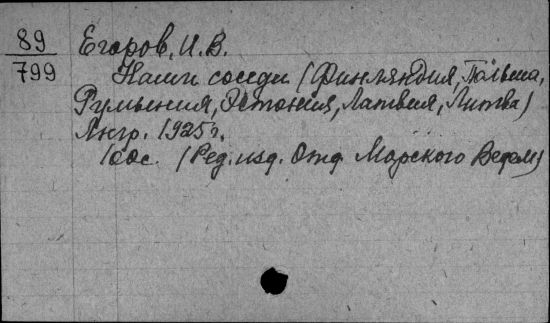 89
799
Егоров, И. В.
Наши соседи (Финляндия, Польша,
Румыния, Эстония, Латвия, Литва)
Лнгр. 1925 г.
100 с. (Ред. изд. Отд Морского Ведом)